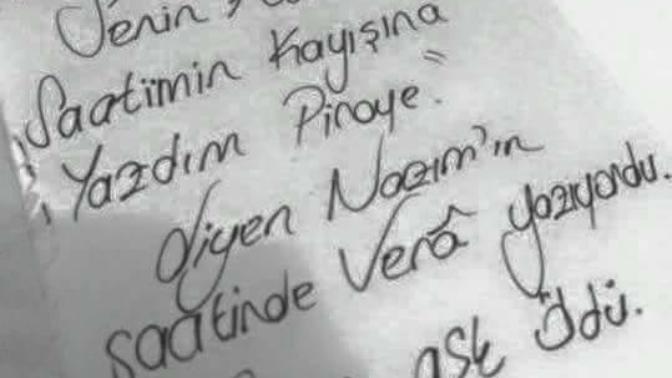 Senin
Saatimin Kayışına
Yazdım Piraye."
diyen Nazım'ın
saatinde Verâ yazıyordu.
aşk öldü.